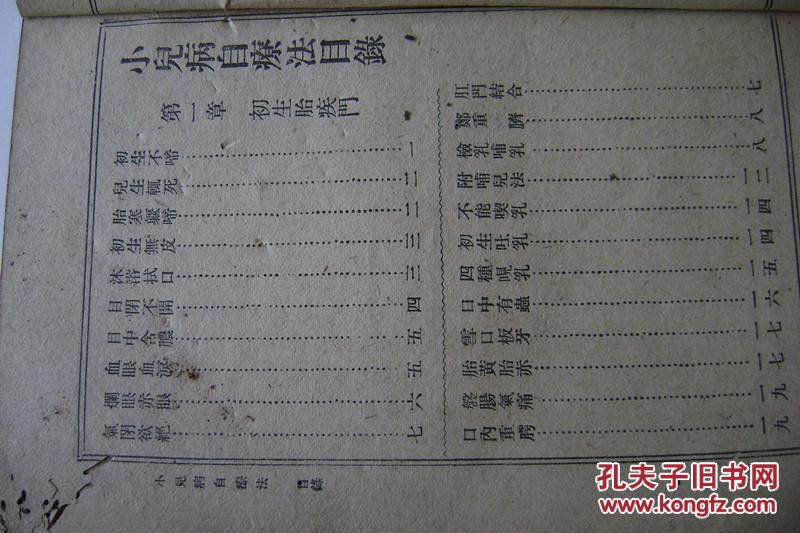 小兒病自療法目錄
第一章 初生胎疾門
初生不啼 一
兒生輒死 二
胎寒厥啼 二
初生無皮 三
沐浴拭口 三
目閉不開 四
目中含膿 五
血眼血淚 五
爛眼赤眼 六
氣閉欲絕 七
肛門結合 七
鄭重臍 八
檢乳哺乳 八
附哺兒法 一二
不能喫乳 一四
初生吐乳 一四
四種哯乳 一五
口中有蟲 一六
雪口板牙 一七
胎黃胎赤 一七
盤腸氣痛 一九
口內重腭 一九
小兒病自療法 目錄
孔夫子旧书网
www.kongfz.com